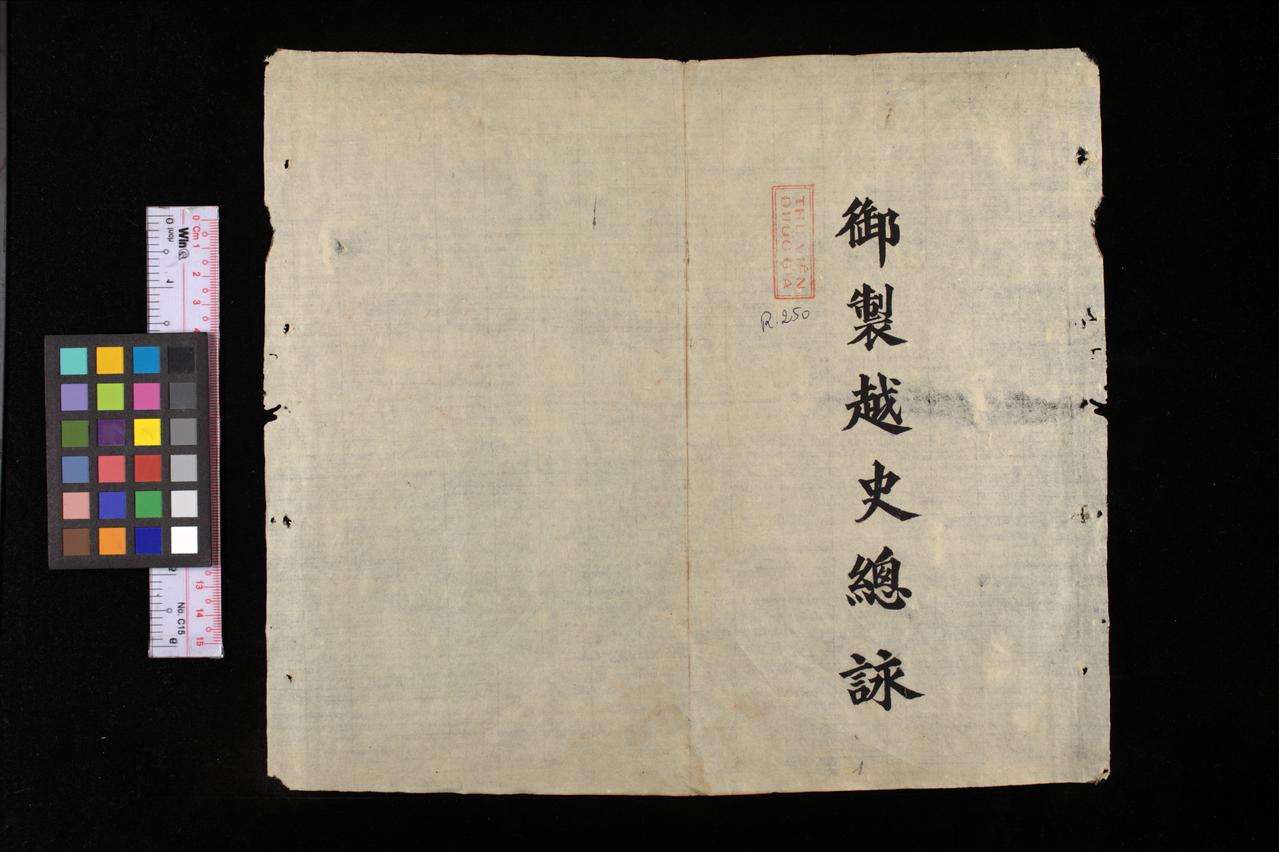 御製越史總詠
THƯ VIỆN
QUỐC GIA
R.250
1
0 Cm 1 2 3 4
13 14 15
No. C15